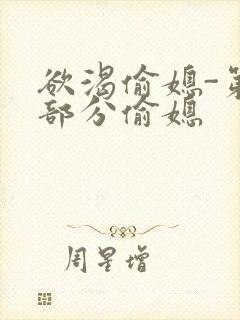 欲渴偷媳-第
部分偷媳
周星增